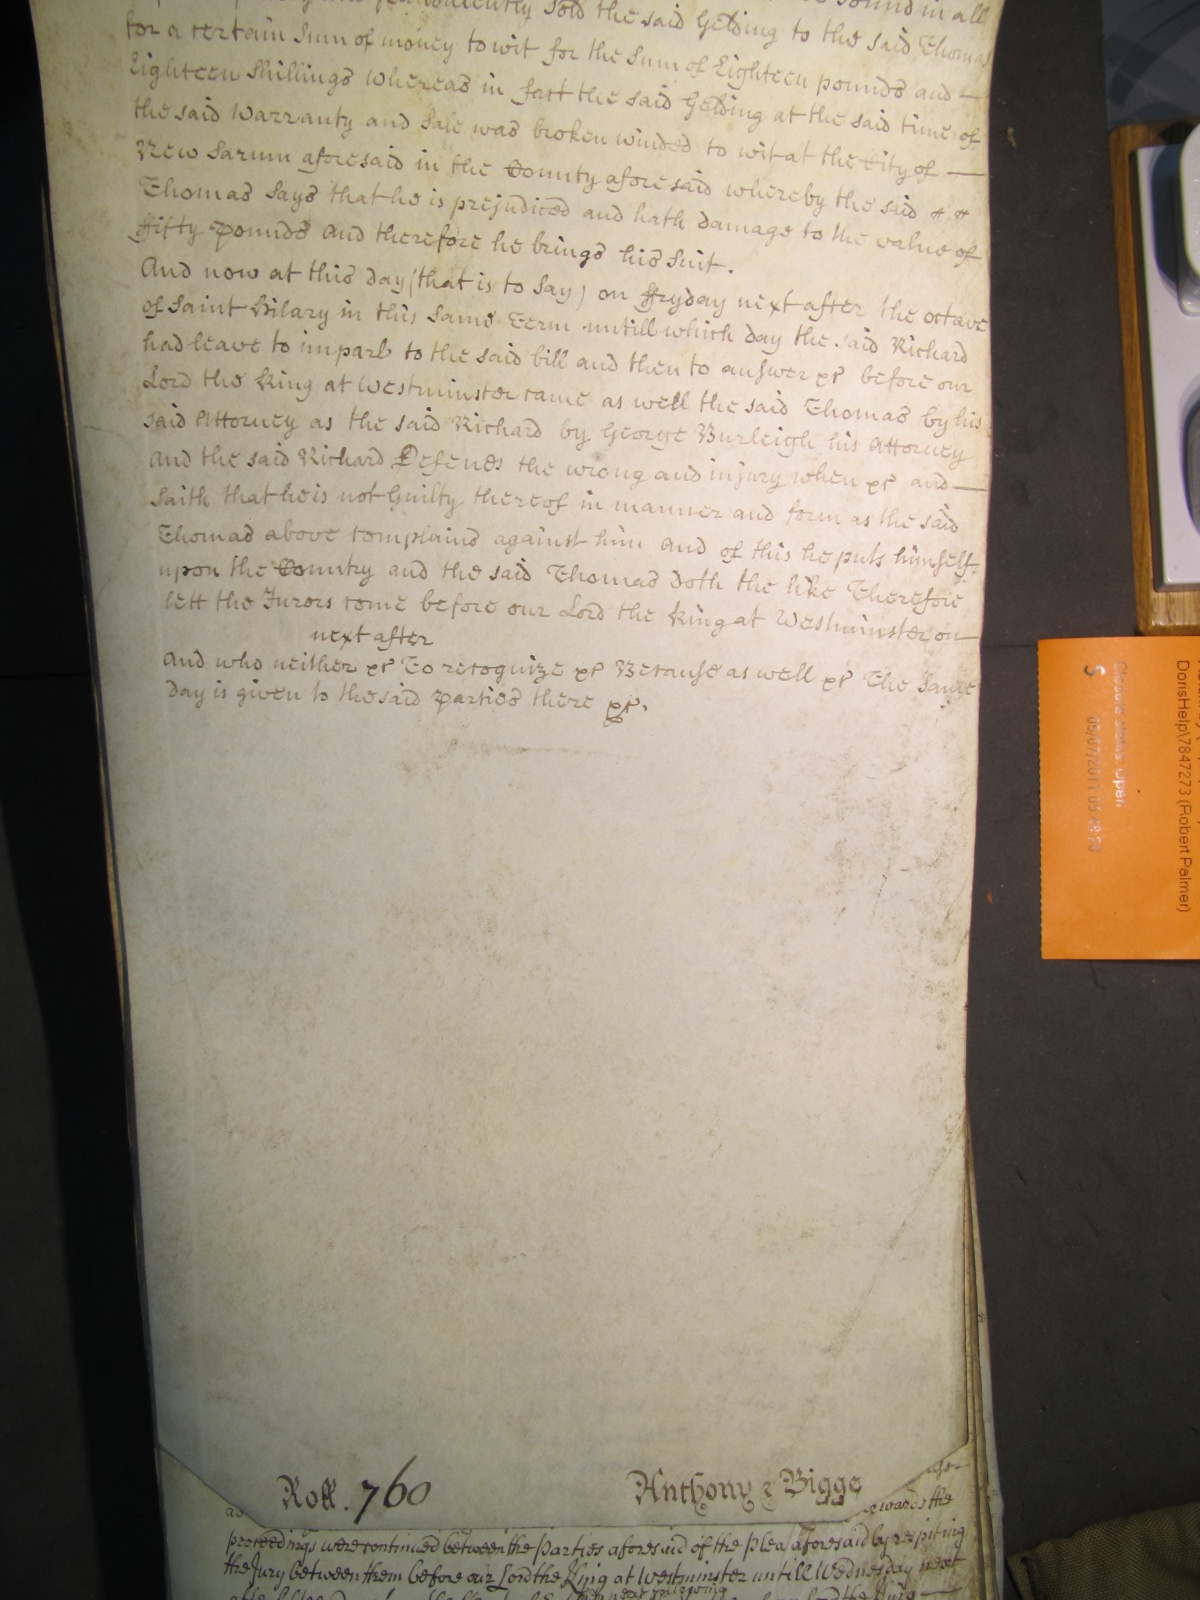 sold the said Gelding to the said Thomas
for a certain Sum of money to wit for the Sum of Eighteen pounds and
Eighteen Shillings Whereas in fact the said Gelding at the said time of
the said Warranty and Sale was broken winded to wit at the City of
New Sarum aforesaid in the County aforesaid whereby the said
Thomas Says that he is prejudiced and hath damage to the value of
ffifty pounds and therefore he brings his Suit.
And now at this day (that is to Say) on ffryday next after the octave
of Saint Hilary in this Same Term untill which day the said Richard
had leave to imparl to the said bill and then to answer &c before our
Lord the King at Westminster came as well the said Thomas by his
said Attorney as the said Richard by George Burleigh his Attorney
And the said Richard Defends the wrong and injury when &c and
saith that he is not Guilty thereof in manner and form as the said
Thomas above complains against him And of this he puts himself
upon the Country and the said Thomas doth the like Therefore
lett the Jurors come before our Lord the King at Westminster on
next after
And who neither &c To recognize &c Because as well &c The Same
day is given to the said parties there &c.
Roll. 760
Anthony & Bigge
wards the
proceedings were continued between the Parties aforesaid of the Plea aforesaid by respiting
the Jury between them before our Lord the King at Westminster untill Wednesday next
DorisHelp\7847273 (Robert Palmer)